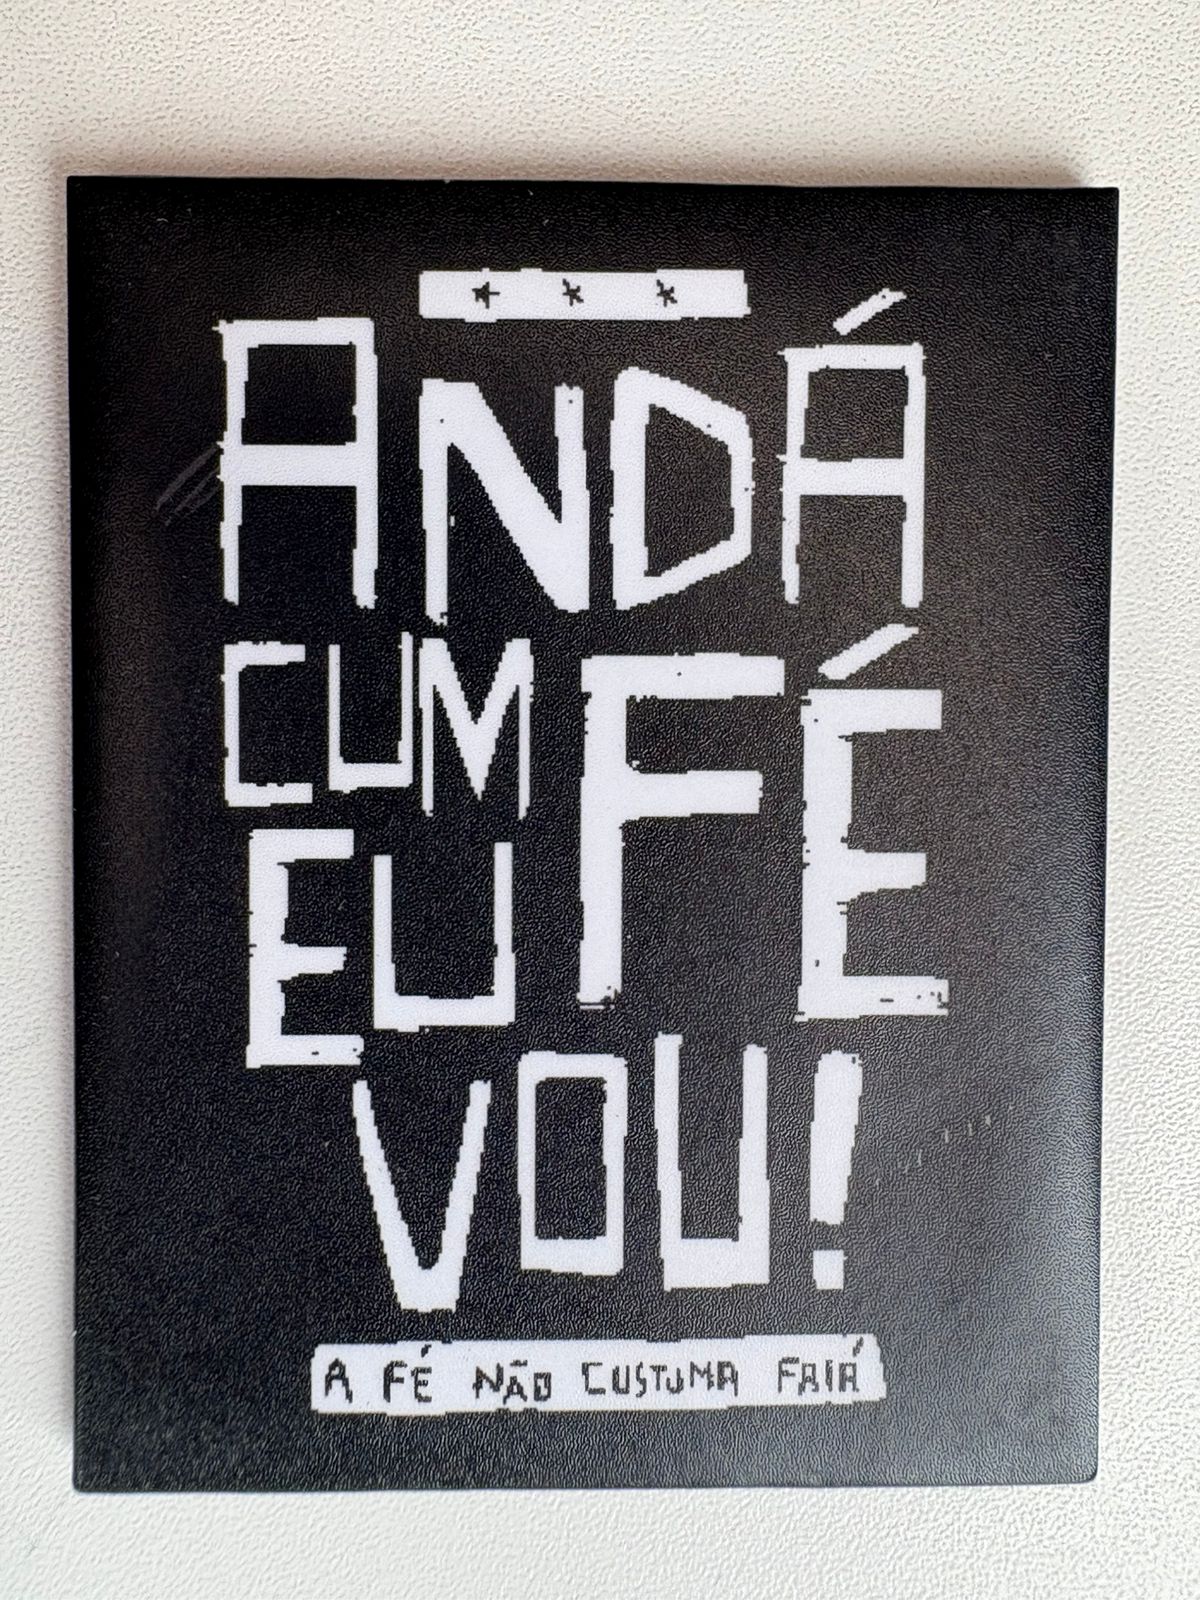 ANDÁ
CUM FÉ
EU
VOU!
A FÉ NÃO CUSTUMA FAIÁ